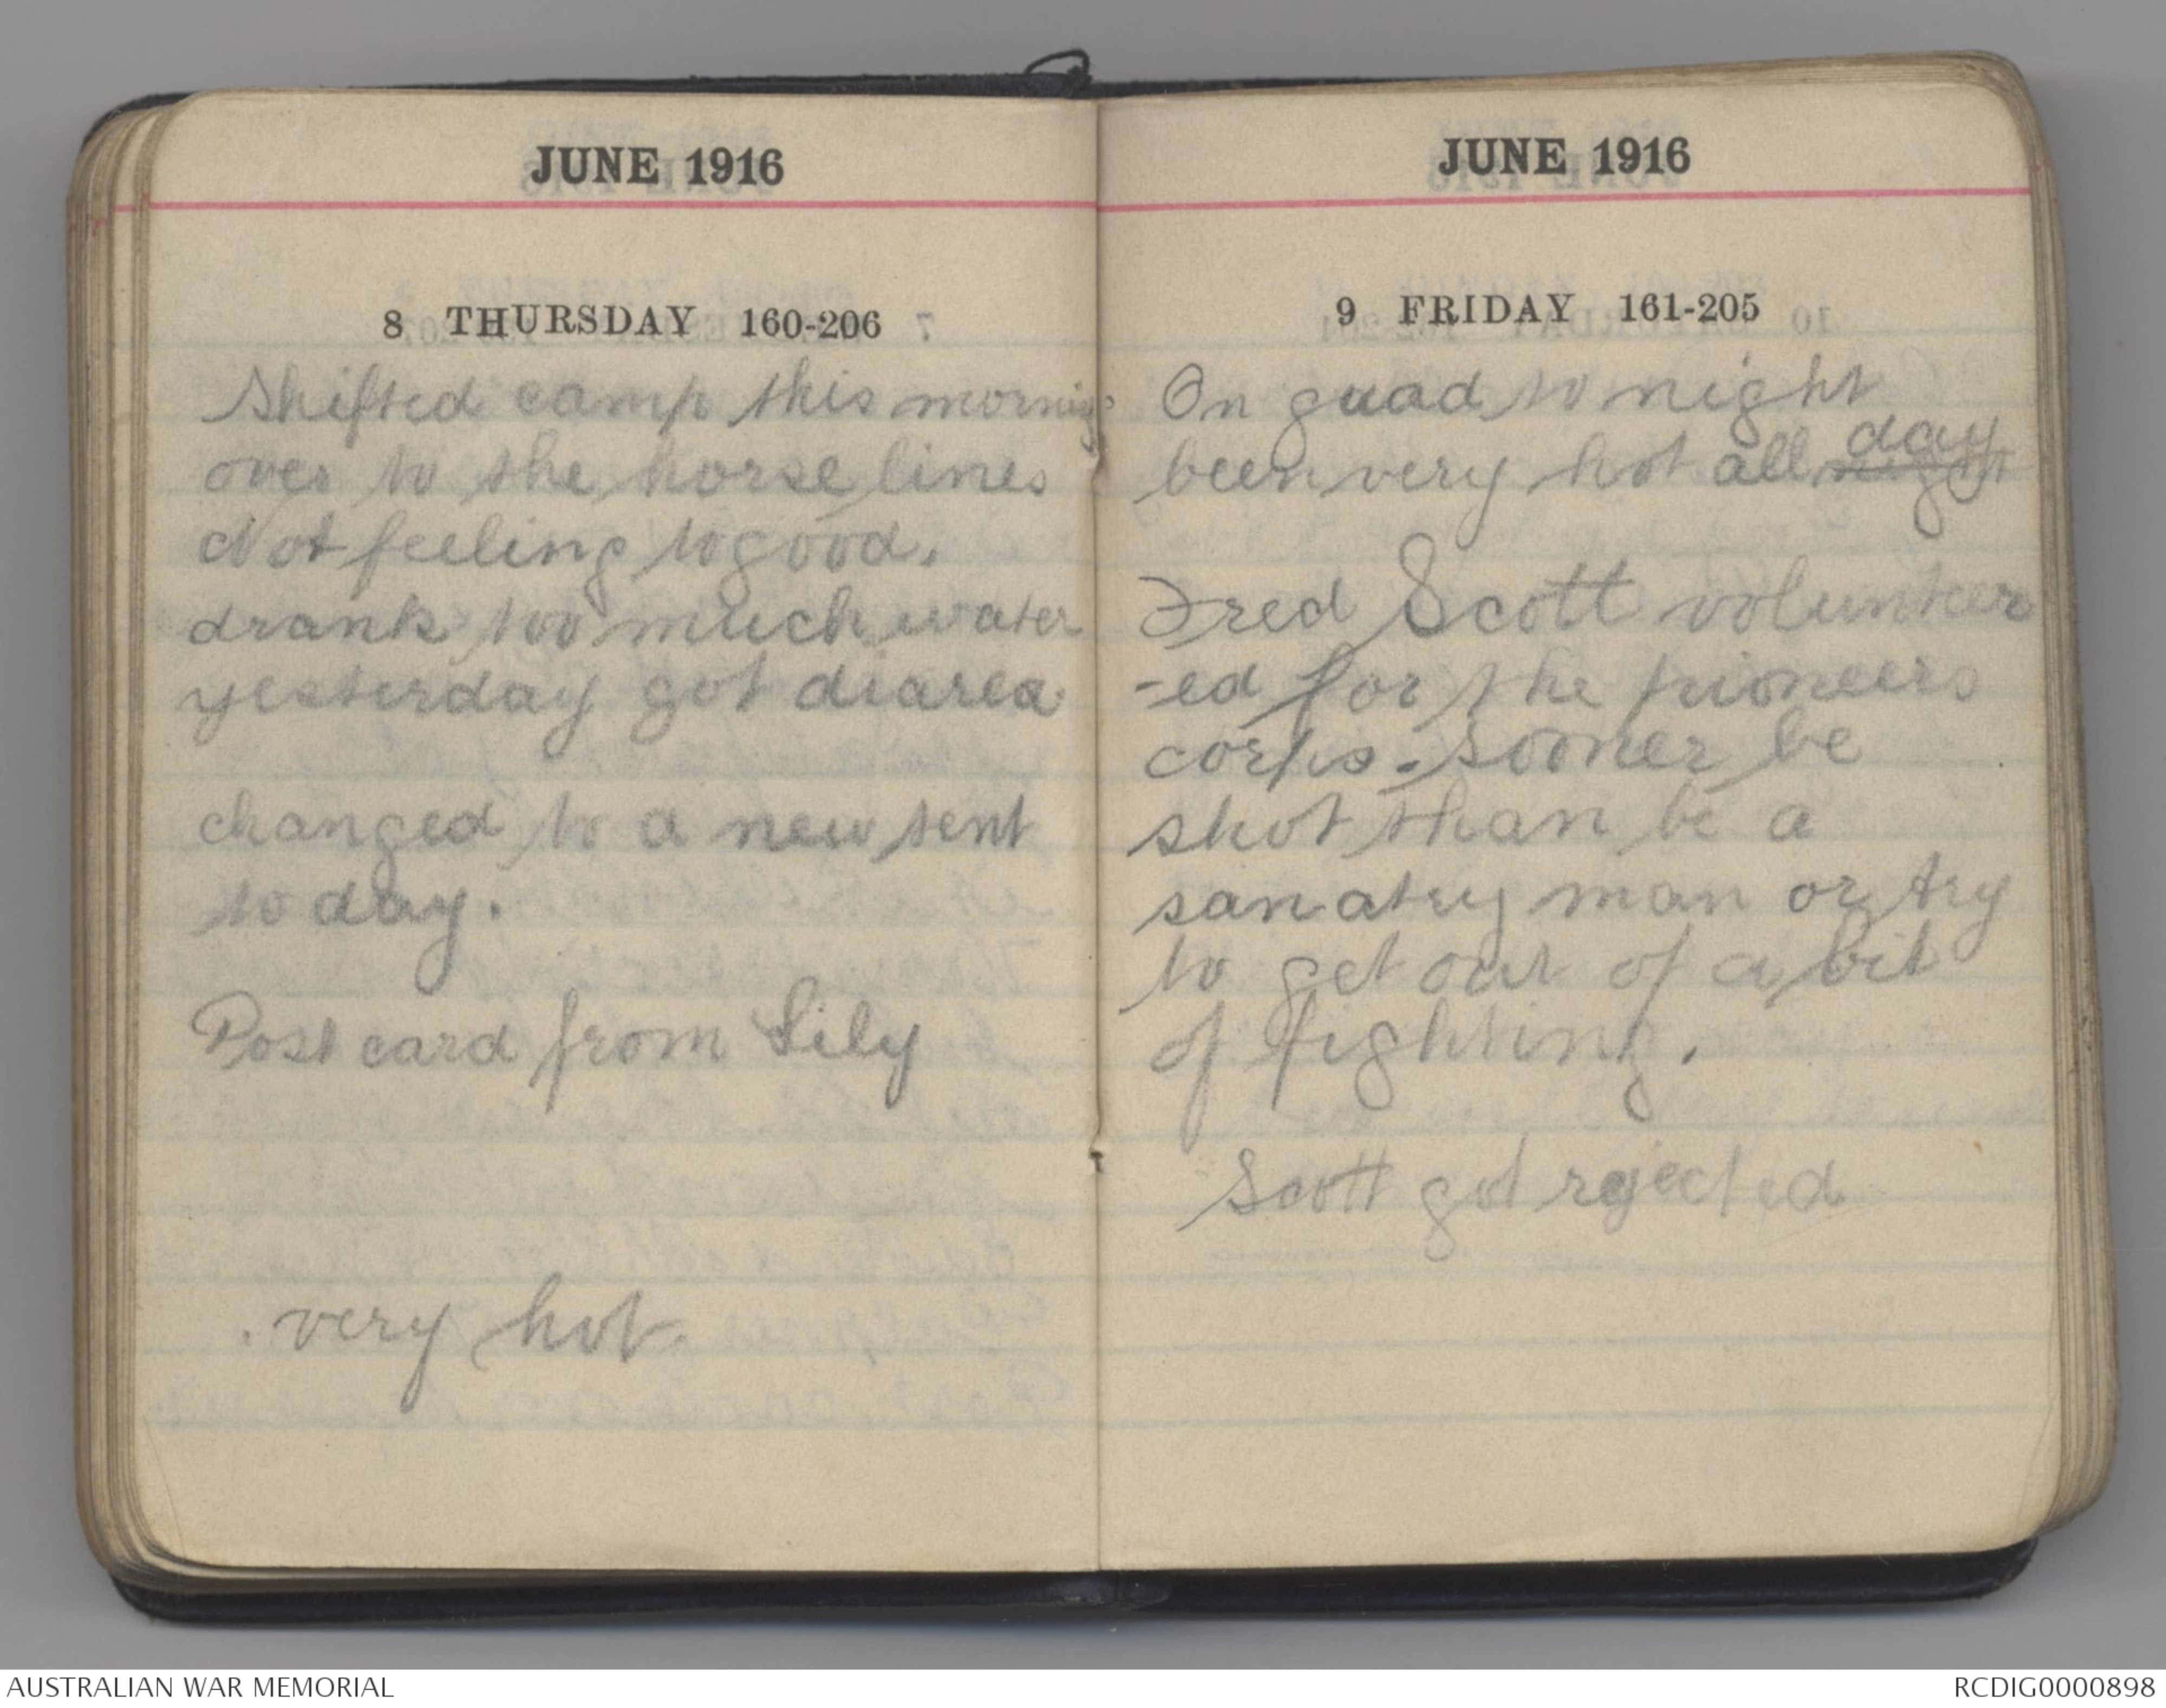 JUNE 1916
8 THURSDAY 160-206
Shifted camp this morning
over to the horse lines
Not feeling to good.
drank too much water
yesterday got diarea
changed to a new tent
to day.
Post card from Lily
. very hot.
JUNE 1916
9 FRIDAY 161-205
On guad to night
day
been very hot all night
Fred Scott volunteer
-ed for the pioneers
corps. sooner be
shot than be a
sanatry man or try
to get out of a bit
of fighting.
Scott got rejected
AUSTRALIAN WAR MEMORIAL
RCDIG0000898